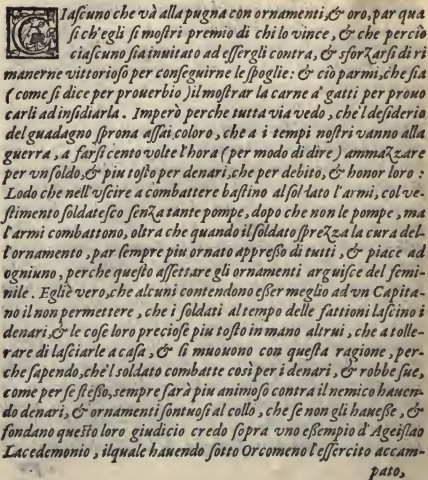 CIascuno che và alla pugna con ornamenti, & oro, par qua
si ch'egli si mostri premio di chi lo vince, & che perciò
ciascuno sia inuitato ad essergli contra, & sforzarsi di ri
manerne vittorioso per conseguirne le spoglie: & ciò parmi, che sia
(come si dice per prouerbio) il mostrar la carne a' gatti per prouo
carli ad insidiarla. Imperò perche tutta via vedo, che'l desiderio
del guadagno sprona assai coloro, che a i tempi nostri vanno alla
guerra, a farsi cento volte l'hora (per modo di dire) ammazzare
per vn soldo, & piu tosto per denari, che per debito, & honor loro:
Lodo che nell'vscire a combattere bastino al soldato l'armi, col ve-
stimento soldatesco senza tante pompe, dopo che non le pompe, ma
l'armi combattono, oltra che quando il soldato sprezza la cura del-
l'ornamento, par sempre piu ornato appreßo di tutti, & piace ad
ogniuno, perche questo assettare gli ornamenti arguisce del femi-
nile. Egliè vero, che alcuni contendono eßer meglio ad vn Capita-
no il non permettere, che i soldati al tempo delle fattioni lascino i
denari, & le cose loro preciose piu tosto in mano altrui, che a tolle-
rare di lasciarle a casa, & si muouono con questa ragione, per-
che sapendo, che'l soldato combatte così per i denari, & robbe sue,
come per se steßo, sempre sarà piu animoso contra il nemico hauen-
do denari, & ornamenti sontuosi al collo, che se non gli haueße, &
fondano questo loro giudicio credo sopra vno eßempio d'Ageislao
Lacedemonio, ilquale hauendo sotto Orcomeno l'essercito accam-
pato,